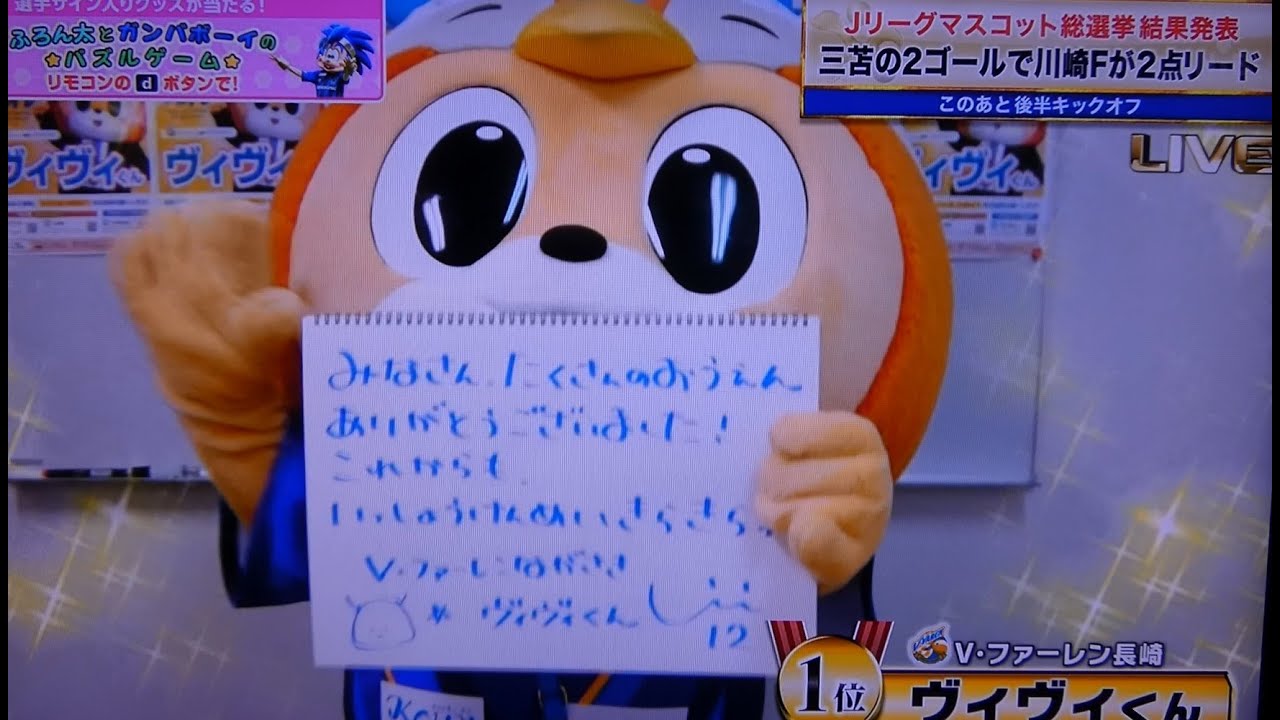 選手サイン入りグッズが当たる！
ふろん太とガンバボーイの
★パズルゲーム★
リモコンの d ボタンで!
Jリーグマスコット総選挙 結果発表
三苫の2ゴールで川崎Fが2点リード
このあと後半キックオフ
LIVE
ヴィヴィくん
ヴィヴィくん
ヴィヴィくん
みなさん、たくさんのおうえん
ありがとうございました!
これからも
いっしょうけんめい、きらきらっ
V・ファーレンながさき
ヴィヴィくん
12
1位
V・ファーレン長崎
ヴィヴィくん